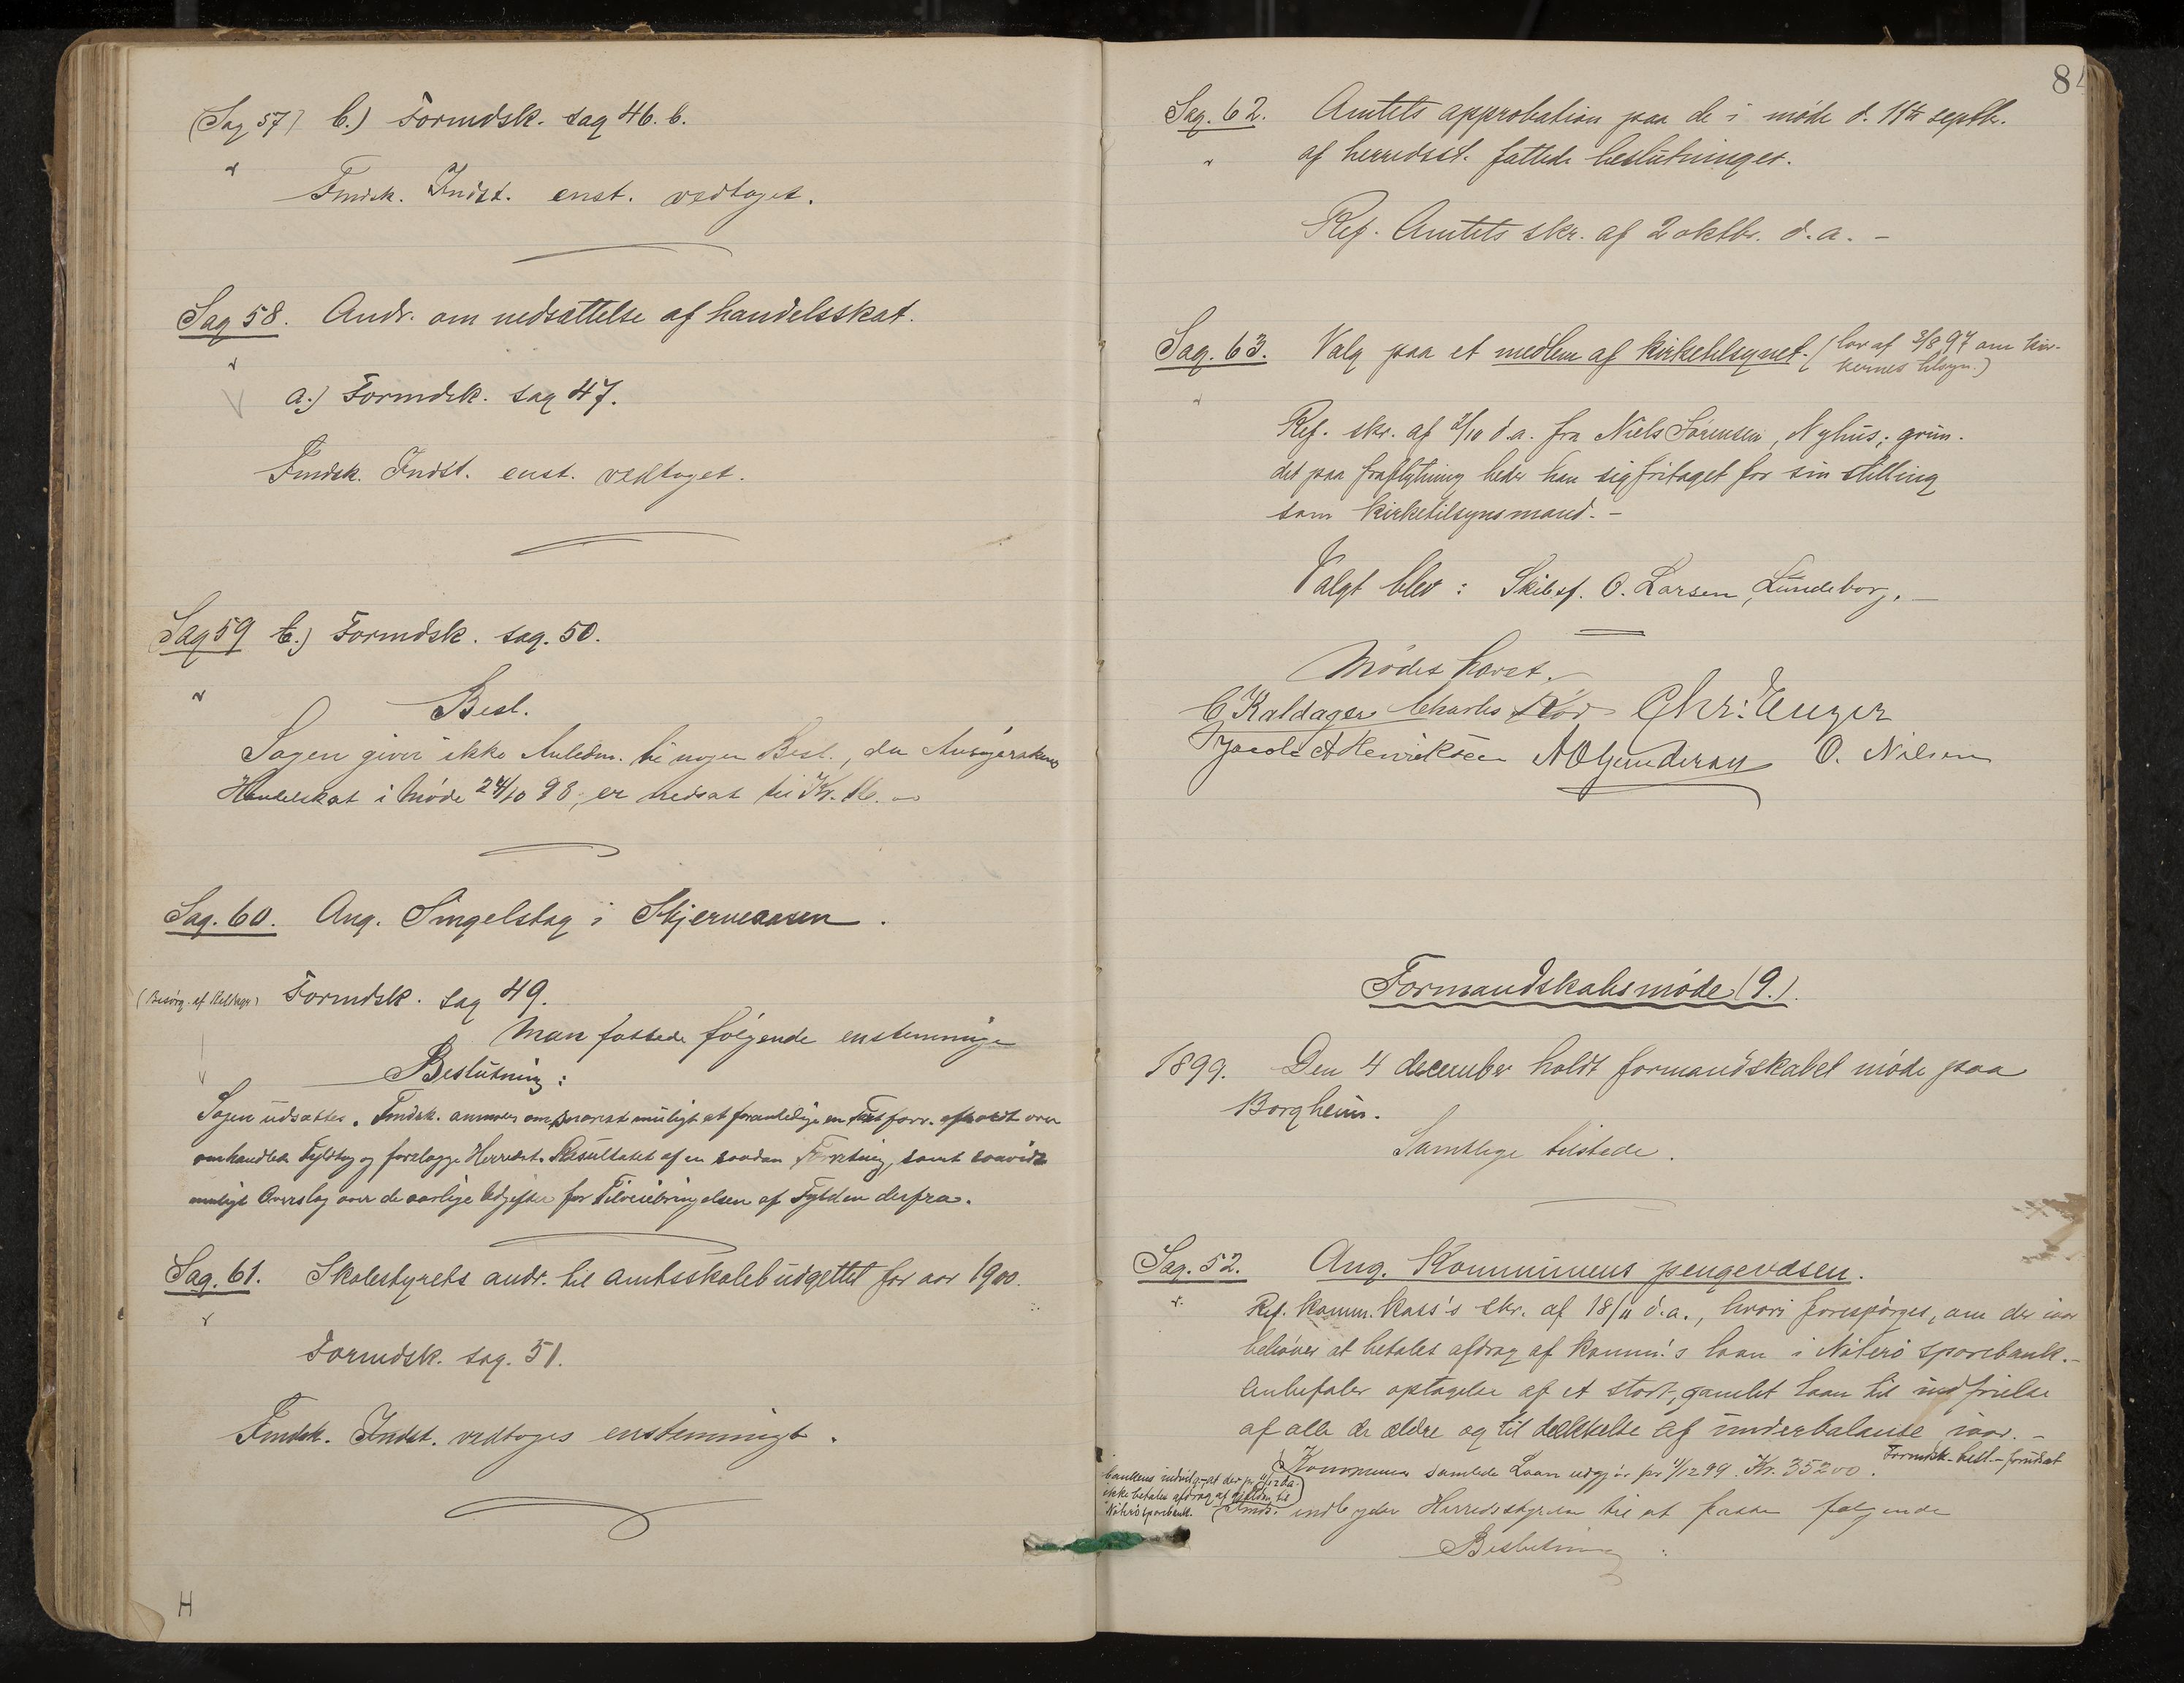 (Sag 57) b.) Formdsk. sag 46. b.
Fmdsk. Indst. enst. vedtaget.
Sag 58. Andr. om nedsættelse af handelsskat.
a.) Formdsk. sag 47.
Fmdsk. Indst. enst. vedtaget.
Sag 59 b.) Formdsk. sag. 50.
Besl.
Sagen giver ikke Anledn. til nogen Besl., da Ansøgerskens
Handelskat i Møde 24/10 98, er nedsat til Kr.
Sag. 60. Ang. Singelstag i Skjerveaasen.
(Besørg. af Kaldager) Formdsk. sag 49.
Man fattede følgende enstemmige
Beslutning:
Sagen udsættes. Fmdsk. anmodes om snarest muligt at foranledige en forr. afholdt over
omhandlede Fyldtag og forelægge Herredst. Resultatet af en saadan Forretning, samt saavidt
muligt Overslag over de aarlige Udgifter for Tilveiebringelsen af Fylden derfra.
Sag. 61. Skolestyrets andr. til amtsskolebudgettet for aar 1900.
Formdsk. sag. 51.
Fmdsk. Indst. vedtages enstemmigt.
H
84
Sag. 62. Amtets approbation paa de i møde d. 11te septbr.
af herredsst. fattede beslutninger.
Ref. Amtets skr. af 2 oktbr. d.a. -
Sag. 63. Valg paa et medlem af kirketilsynet. (lov af 3/8 97 om kir-
kernes tilsyn.)
Ref. skr. af 2/10 d.a. fra Niels Sørensen, Nyhus; grun-
det paa fraflytning beder han sig fritaget for sin stilling
som kirketilsynsmand. -
Valgt blev: Skibsf. O. Larsen, Lundeborg. -
Mødet hævet.
C Kaldager Charles Chr: Unger
Jacob A Henriksen A O Gundersen O. Nilsen
Formandskabsmøde (9.).
1899. Den 4 december holdt formandskabet møde paa
Borgheim.
Samtlige tilstede.
Sag. 52. Ang. Kommunens pengevæsen.
Ref. komm. kass's skr. af 18/11 d.a., hvori forespørges, om der iaar
behøver at betales afdrag af komm's laan i Nøterø sparebank. -
Anbefaler optagelse af et stort, samlet laan til indfrielse
af alle de ældre og til dækkelse af underbalanse iaar. -
Formdsk. besl. - forudsat
bankens indvilg. - at der pr 11/12 d.a.
ikke betales afdrag af gjælden til
Nøterø sparebank.
Kommunens samlede Laan udgjør pr 11/12 99. Kr. 35200.
Fmds. indbyder Herredsstyrelsen til at fatte følgende
Beslutning: